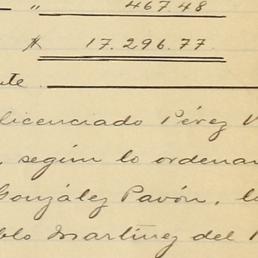 " 467.48
$ 17.296.77
te.
licenciado Pérez V
, según lo ordena
González Pavón, l
blo Martínez del